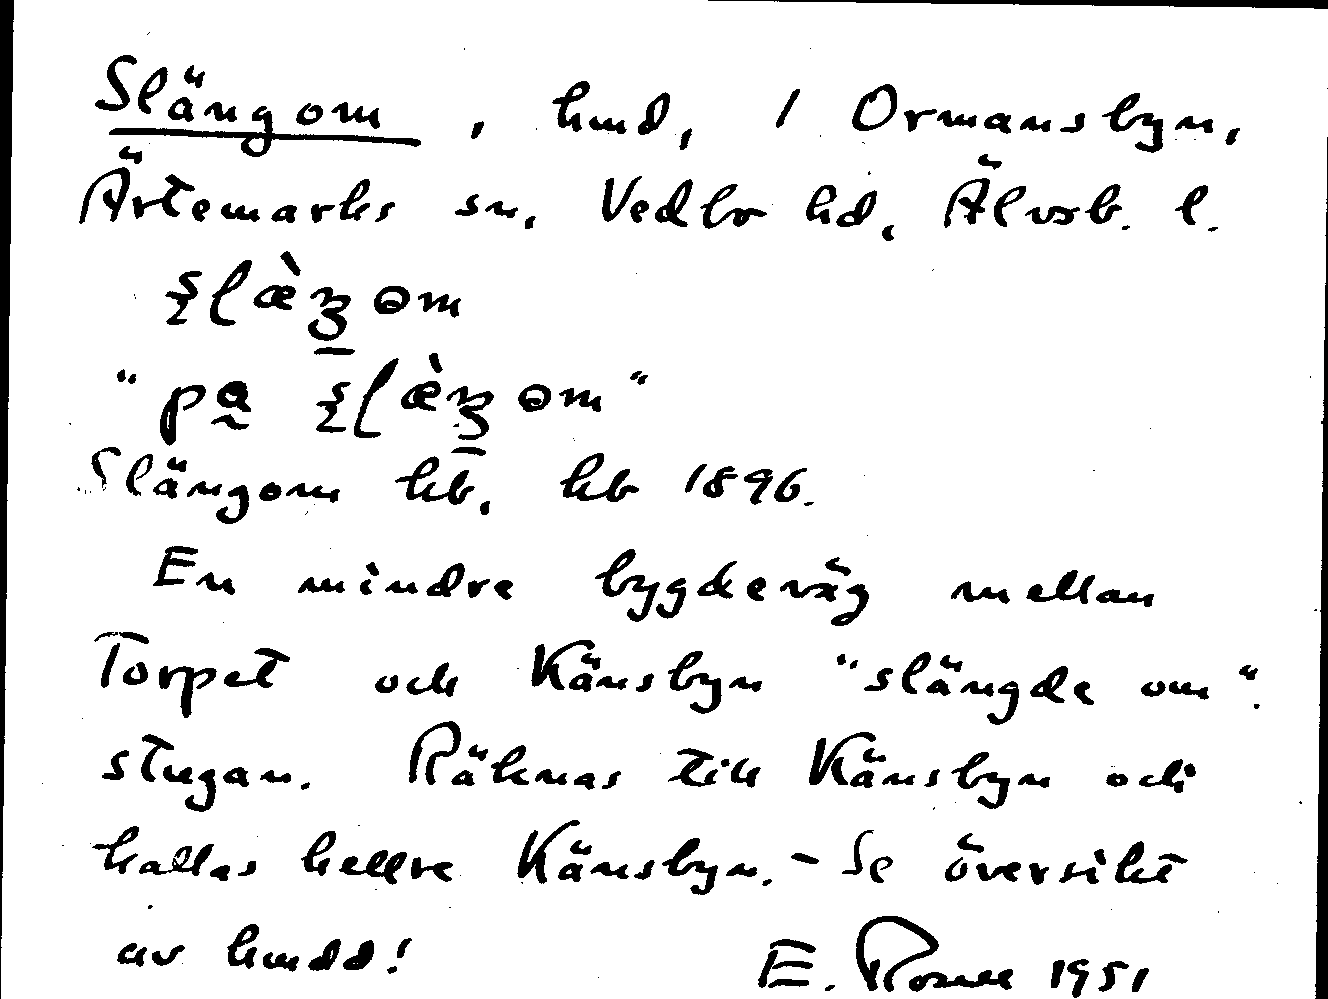 Slängom, hmd, / Ormansbyn,
Ärtemarks sn, Vedbo hd, Älvsb. l.
"på
Slängom hb, kb 1896.
En mindre bygdeväg mellan
Torpet och Känsbyn "slängde om".
stugan. Räknas till Känsbyn och
kallas hellre Känsbyn. - Se översikt
av hmdd!
E. 1951